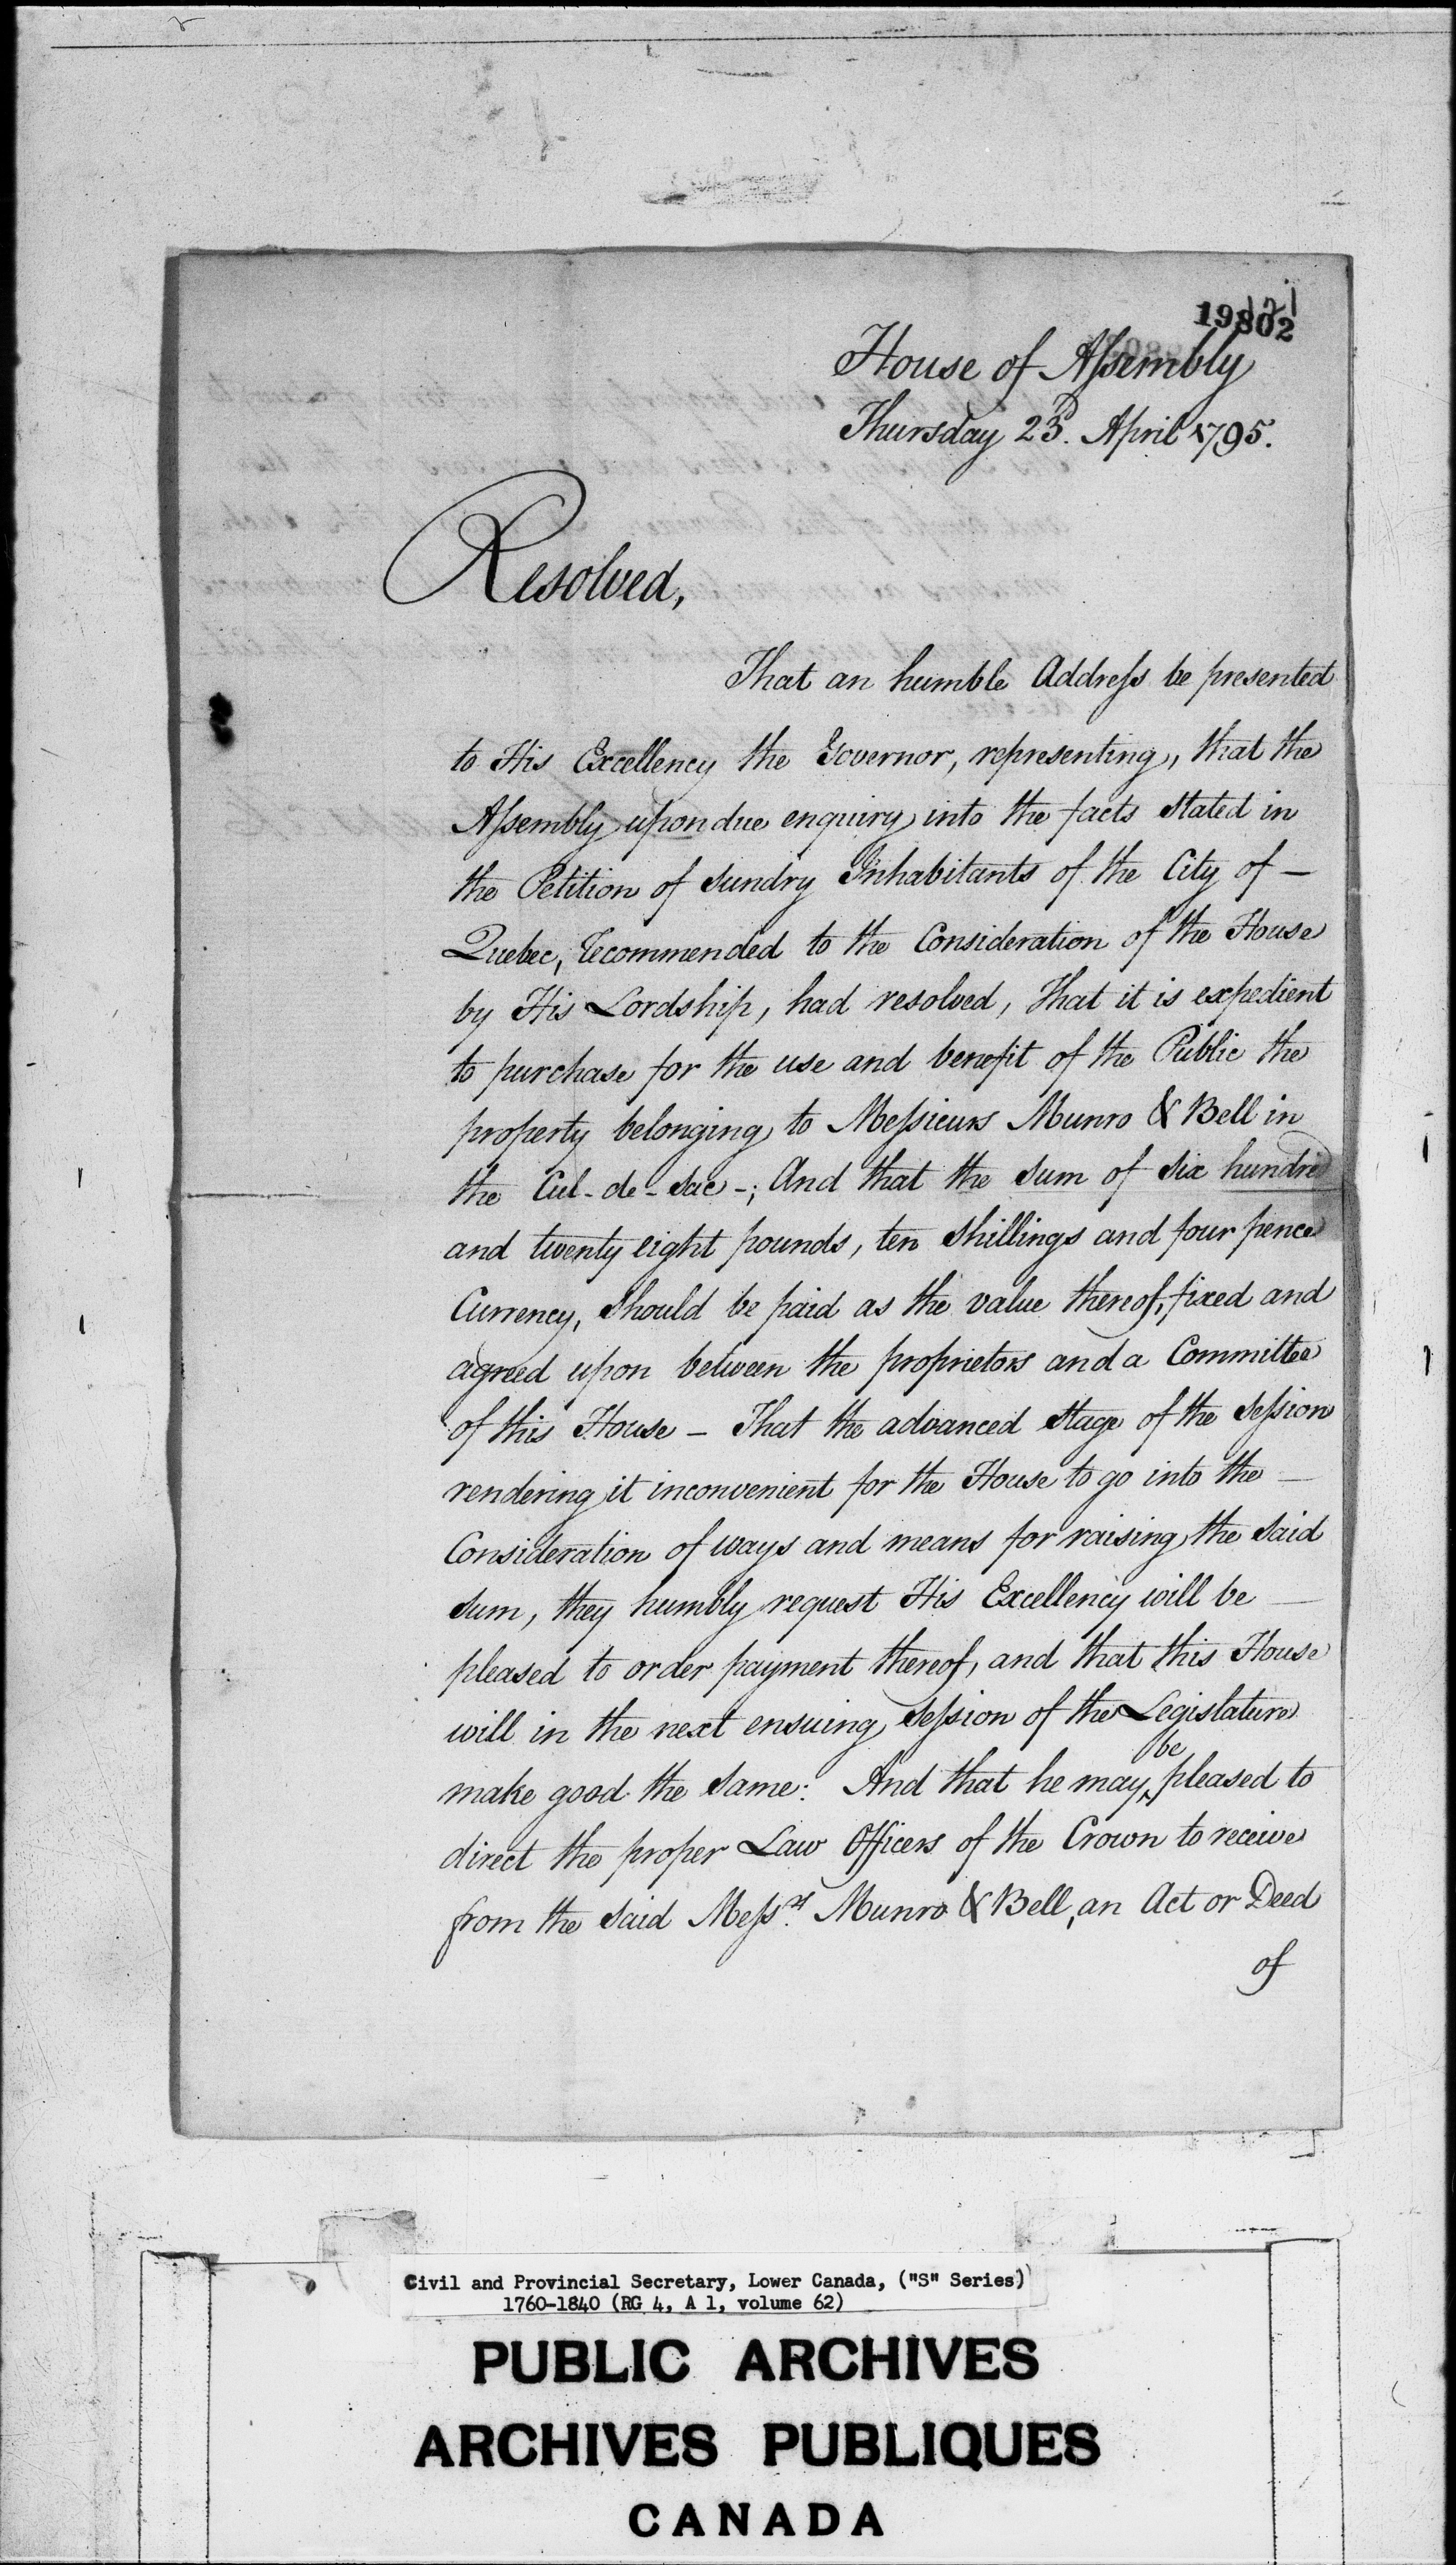 19802
121
House of Assembly
Thursday 23d. April 1795.
Resolved,
That an humble Address be presented
to His Excellency the Governor, representing, that the
Assembly upon due enquiry into the facts stated in
the Petition of sundry Inhabitants of the City of —
Quebec, recommended to the Consideration of the House
by His Lordship, had resolved, That it is expedient
to purchase for the use and benefit of the Public the
property belonging to Messieurs Munro & Bell in
the Cul-de-Sac-; And that the sum of six hundred
and twenty eight pounds, ten shillings and four pence
Currency, should be paid as the value thereof, fixed and
agreed upon between the proprietors and a Committee
of this House – That the advanced stage of the session
rendering it inconvenient for the House to go into the —
Consideration of ways and means for raising the said
sum, they humbly request His Excellency will be —
pleased to order payment thereof, and that this House
will in the next ensuing session of the Legislature
make good the same: And that he may be pleased to
direct the proper Law Officers of the Crown to receive
from the said Messrs. Munro & Bell, an Act or Deed
of
Civil and Provincial Secretary, Lower Canada, ("S" Series)
1760-1840 (RG 4, A 1, volume 62)
PUBLIC ARCHIVES
ARCHIVES PUBLIQUES
CANADA